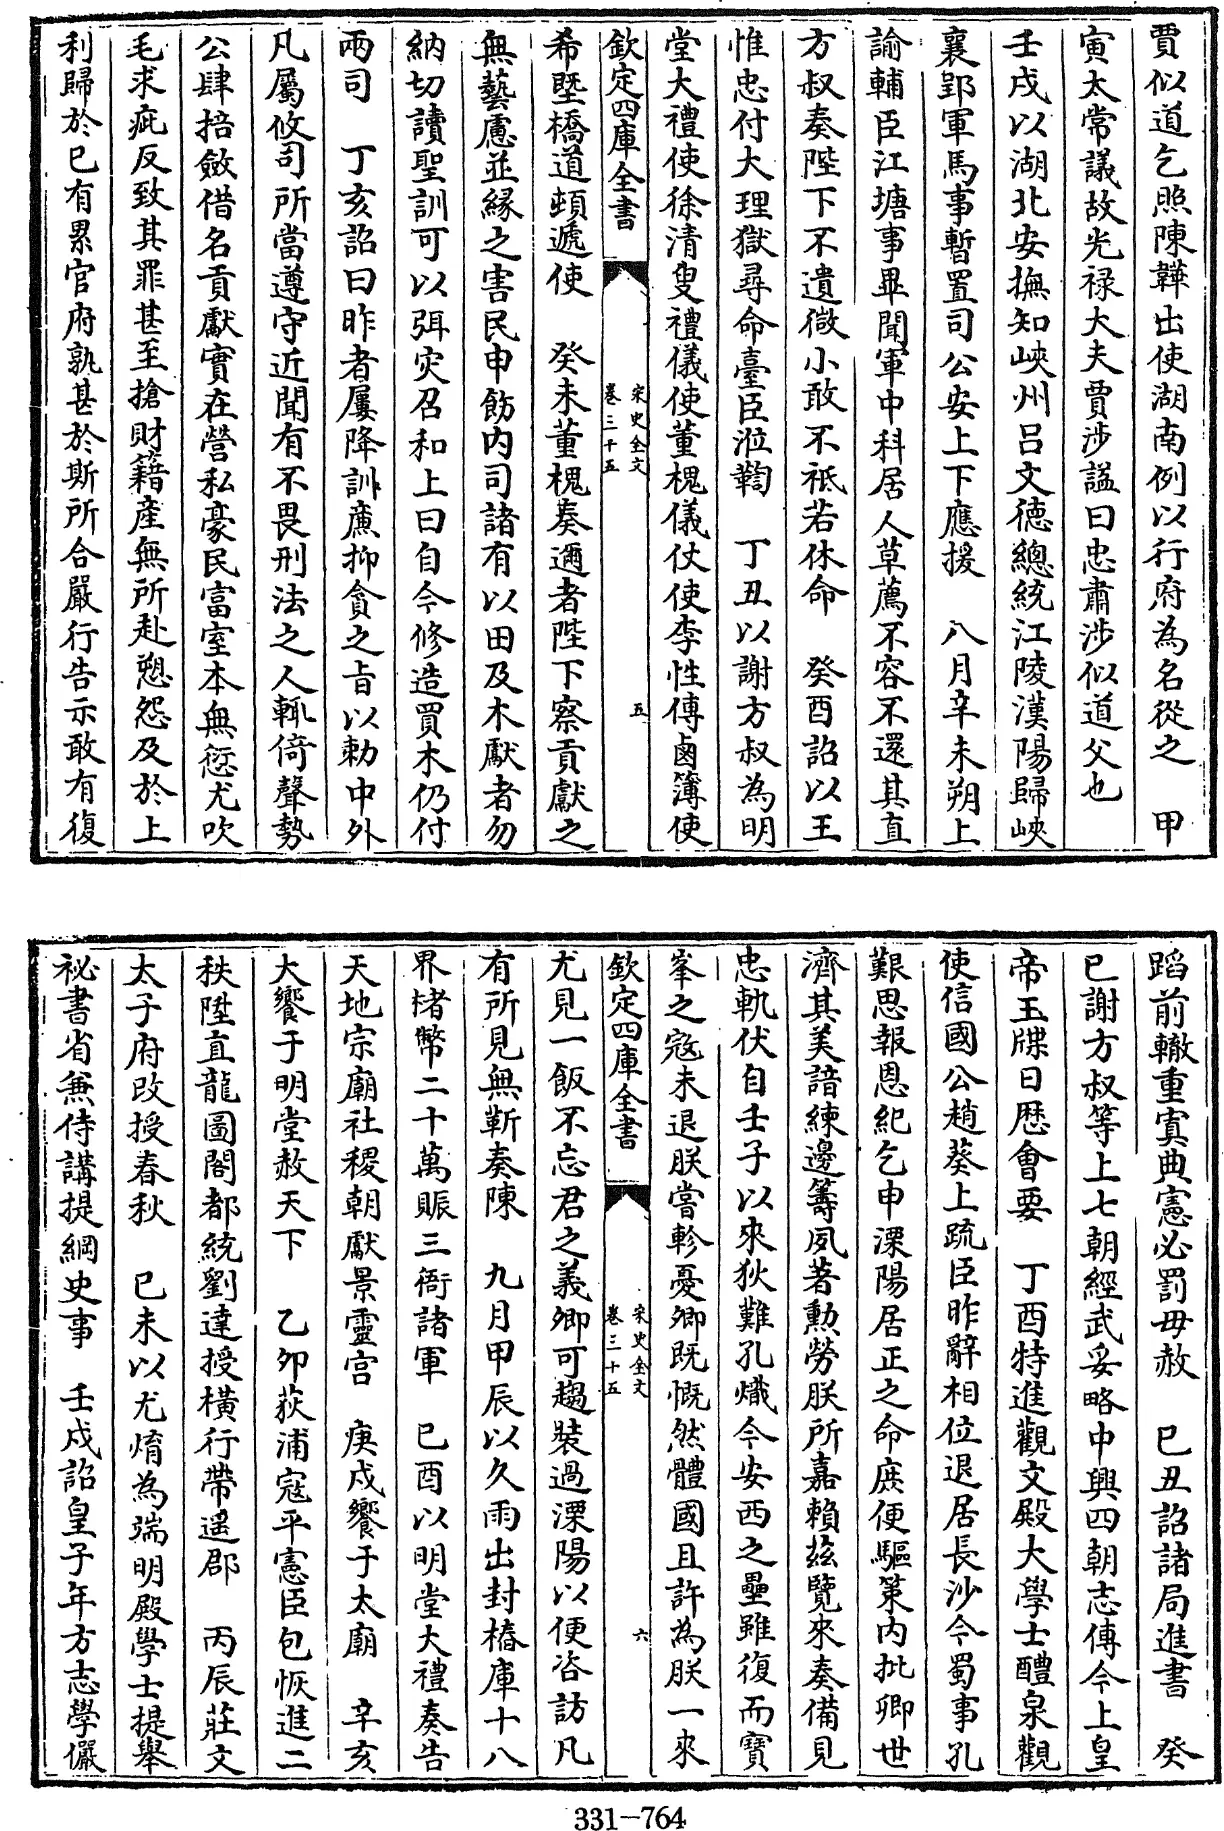 賈似道乞照陳韡出使湖南例以行府為名從之　甲
寅太常議故光禄大夫賈涉諡曰忠肅涉似道父也
壬戌以湖北安撫知峽州吕文德總統江陵漢陽歸峽
襄郢軍馬事暫置司公安上下應援　八月辛未朔上
諭輔臣江塘事畢聞軍中科居人草薦不容不還其直
方叔奏陛下不遺微小敢不祗若休命　癸酉詔以王
惟忠付大理獄尋命臺臣涖鞫　丁丑以謝方叔為明
堂大禮使徐清叟禮儀使董槐儀仗使李性傳鹵簿使
欽定四庫全書　宋史全文卷三十五　五
希墍橋道頓遞使　癸未董槐奏邇者陛下察貢獻之
無藝慮並緣之害民申飭内司諸有以田及木獻者勿
納切讀聖訓可以弭灾召和上曰自今修造買木仍付
兩司　丁亥詔曰昨者屢降訓廉抑貪之旨以勅中外
凡屬攸司所當遵守近聞有不畏刑法之人輒倚聲勢
公肆掊斂借名貢獻實在營私豪民富室本無愆尤吹
毛求疵反致其罪甚至搶財籍產無所赴愬怨及於上
利歸於己有累官府孰甚於斯所合嚴行告示敢有復
蹈前轍重寘典憲必罰毋赦　己丑詔諸局進書　癸
巳謝方叔等上七朝經武妥略中興四朝志傳今上皇
帝玉牒日厯會要　丁酉特進觀文殿大學士醴泉觀
使信國公趙葵上疏臣昨辭相位退居長沙今蜀事孔
艱思報恩紀乞申溧陽居正之命庶便驅策内批卿世
濟其美諳練邊籌夙著勲勞朕所嘉賴兹覽來奏備見
忠軌伏自壬子以來狄難孔熾今安西之壘雖復而寶
峯之寇未退朕嘗軫憂卿既慨然體國且許為朕一來
欽定四庫全書　宋史全文卷三十五　六
尤見一飯不忘君之義卿可趨裝過溧陽以便咨訪凡
有所見無靳奏陳　九月甲辰以久雨出封樁庫十八
界楮幣二十萬賑三衙諸軍　己酉以明堂大禮奏告
天地宗廟社稷朝獻景靈宫　庚戌饗于太廟　辛亥
大饗于明堂赦天下　乙卯荻浦寇平憲臣包恢進二
秩陞直龍圖閣都統劉達授橫行帶遥郡　丙辰莊文
太子府改授春秋　己未以尤焴為端明殿學士提舉
祕書省兼侍講提綱史事　壬戌詔皇子年方志學儼
331-764